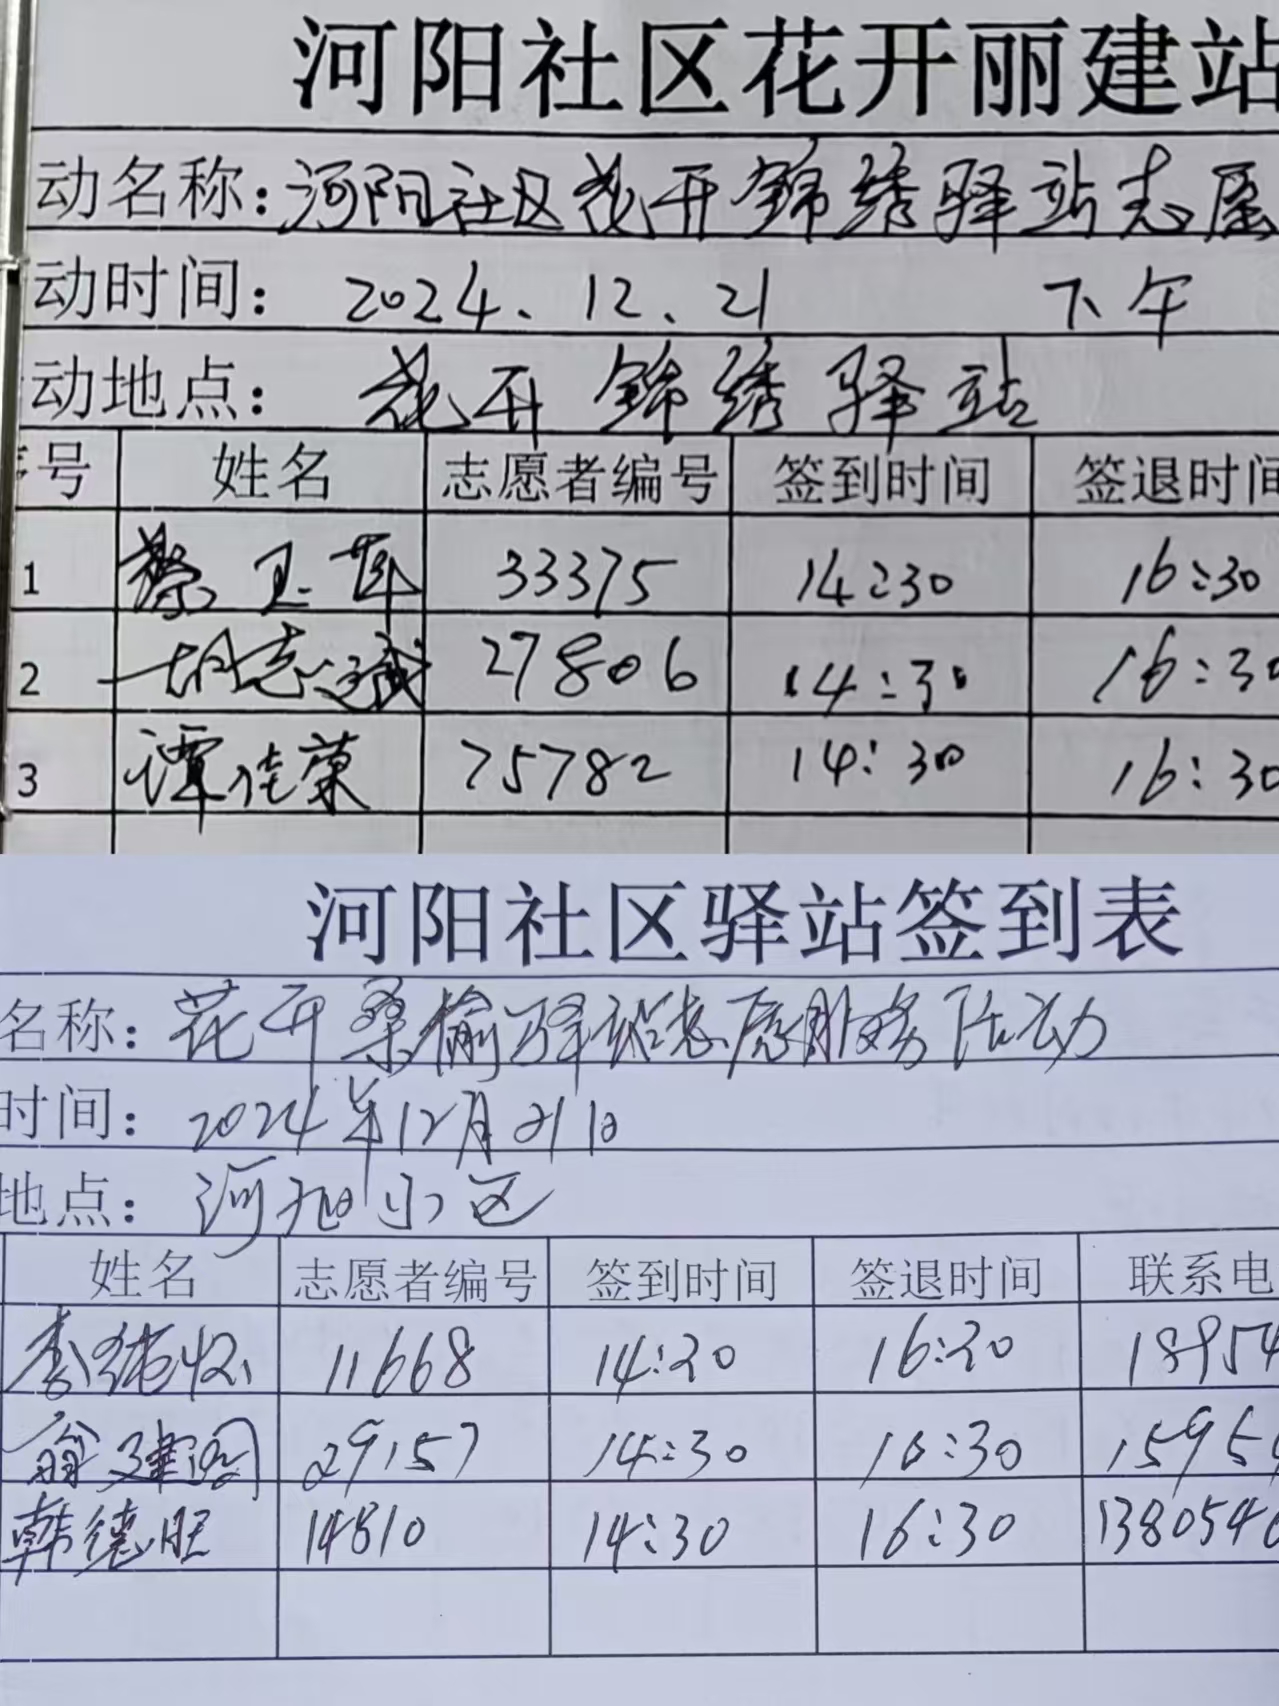 河阳社区花开丽建站
动名称：河阳社区花开锦绣驿站志愿
动时间：2024、12、21 下午
动地点：花开锦绣驿站
号 姓名 志愿者编号 签到时间 签退时间
1 蔡卫苹 33375 14:30 16:30
2 胡志斌 27806 14:30 16:30
3 谭佳菊 75782 14:30 16:30
河阳社区驿站签到表
名称：花开桑榆驿站志愿服务活动
时间：2024年12月21日
地点：河旭小区
姓名 志愿者编号 签到时间 签退时间 联系电
李纯怀 11668 14:20 16:20 18954
翁建阁 29157 14:30 16:30 1595
韩德胜 14810 14:30 16:30 1380546